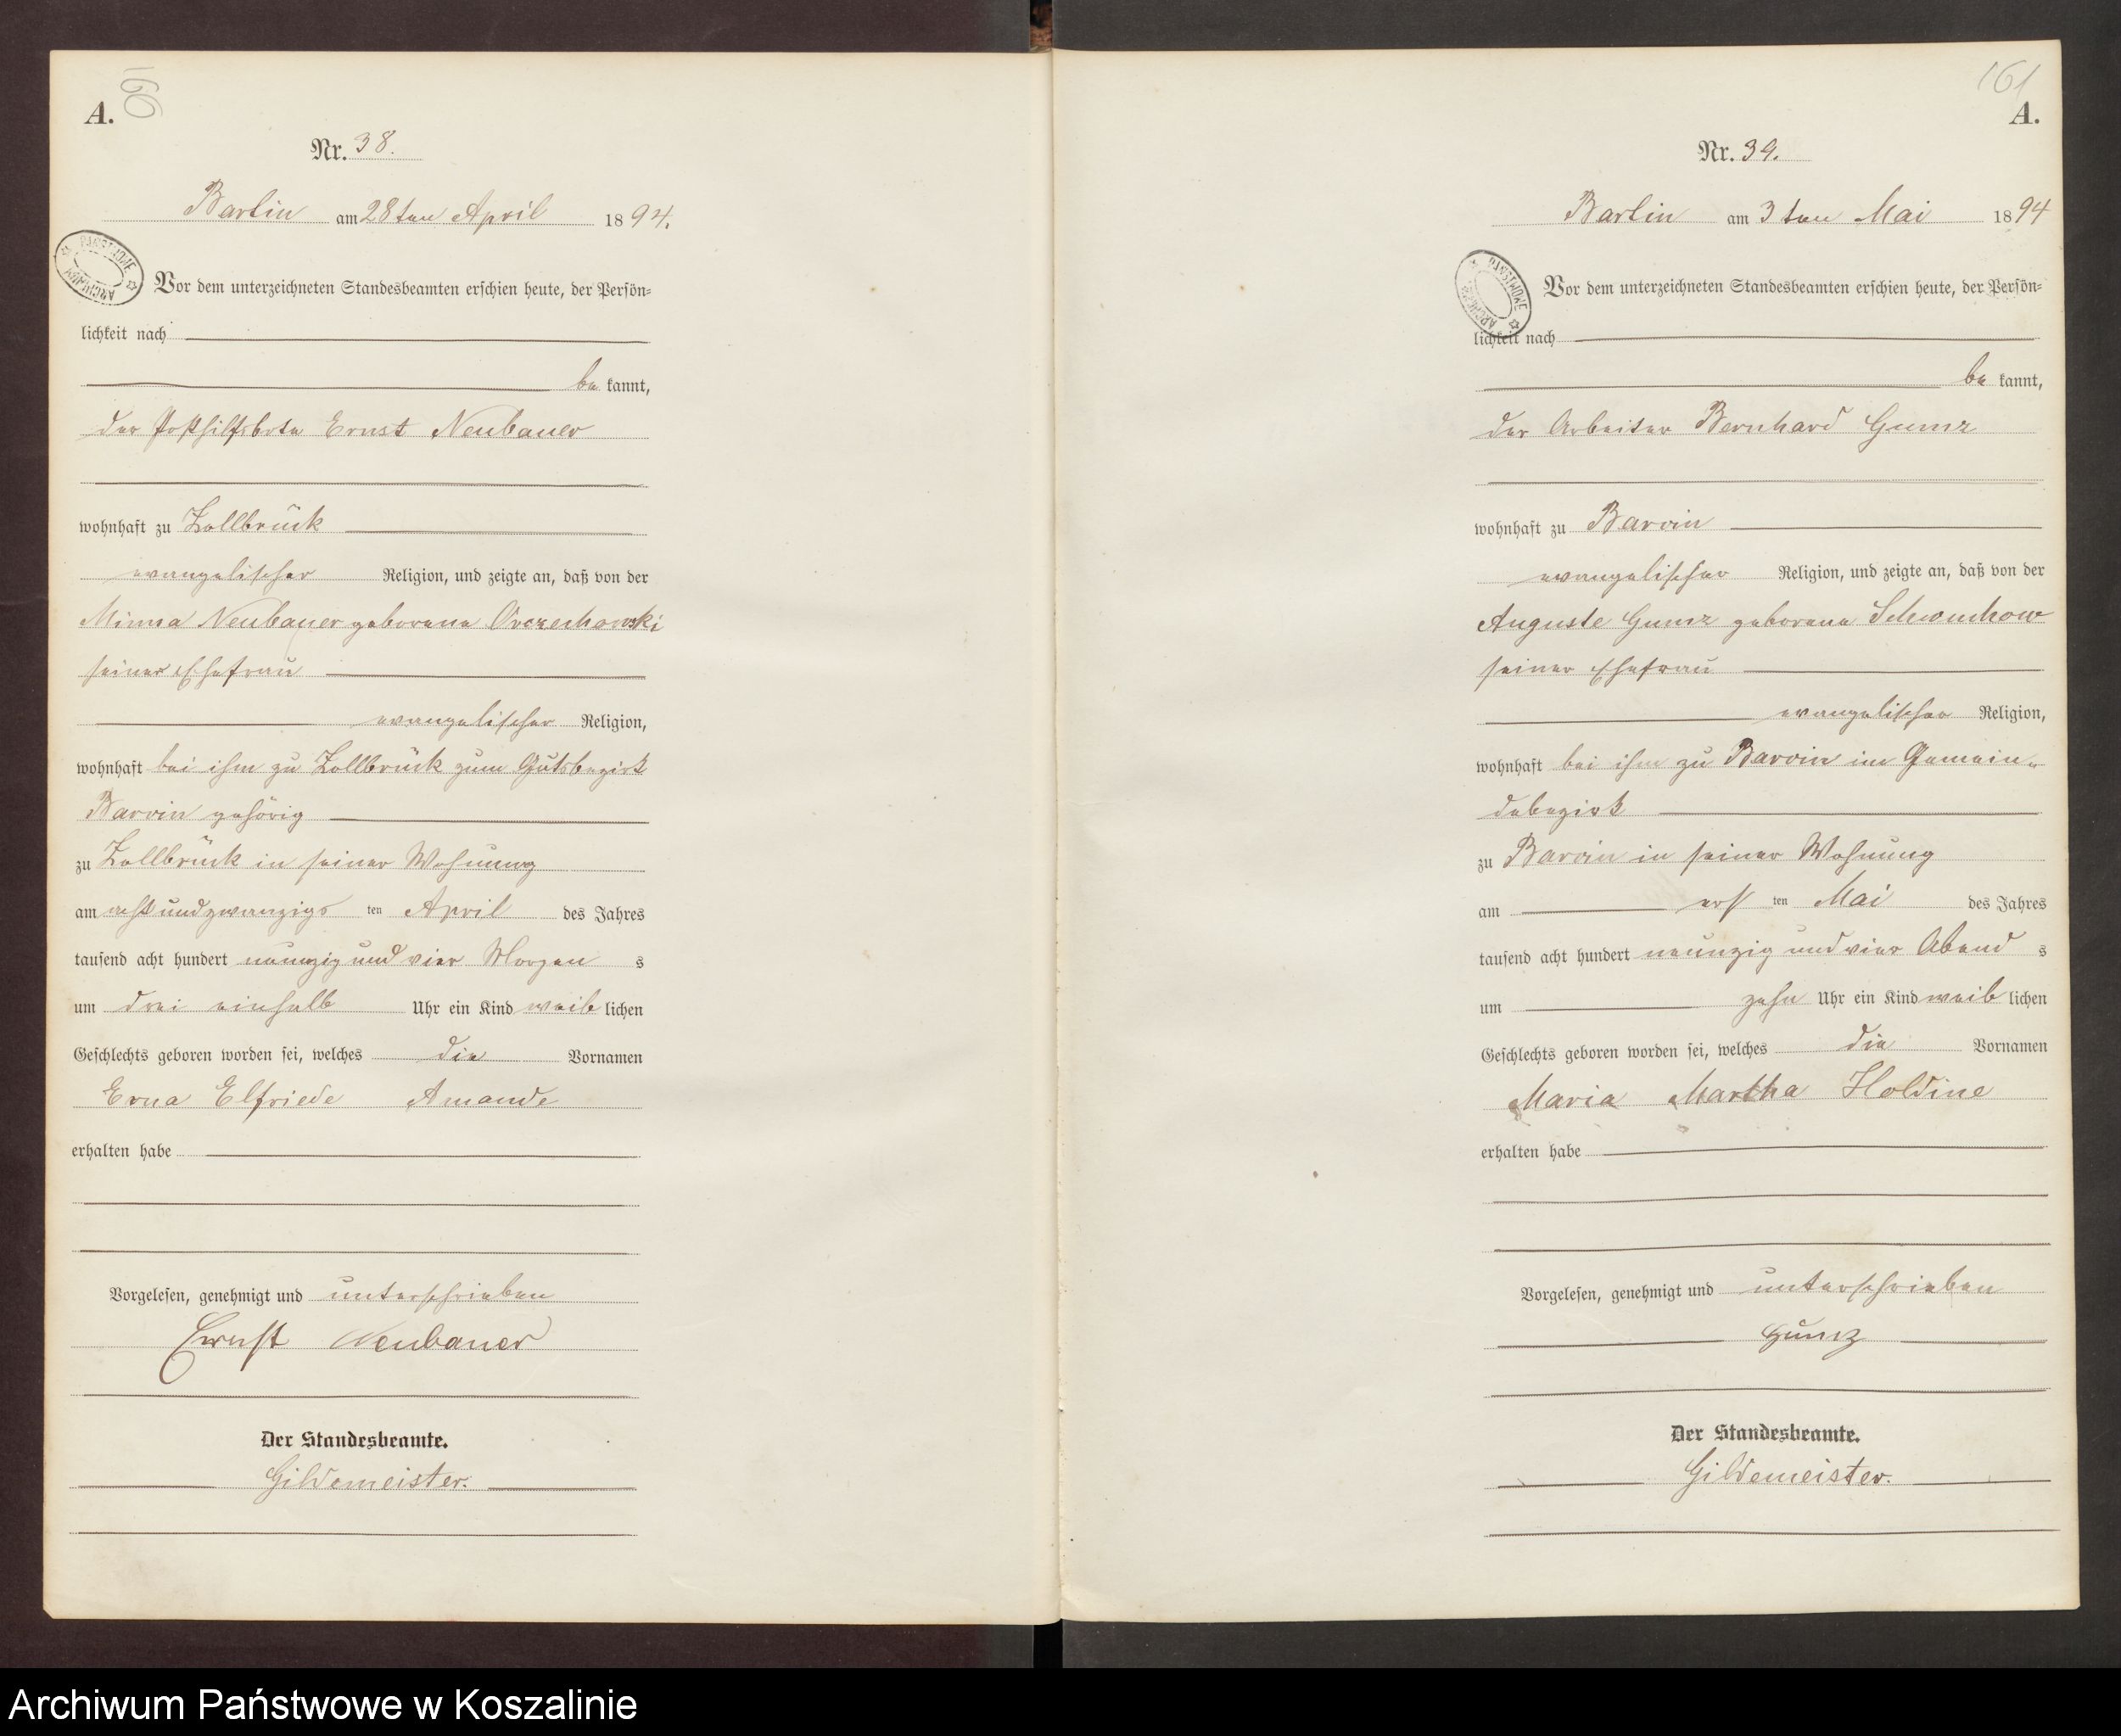 A.
160
Nr. 38.
Bartin am 28ten April 1894.
Vor dem unterzeichneten Standesbeamten erschien heute, der Persön=
lichkeit nach
be kannt,
der Posthilfsbote Ernst Neubauer
wohnhaft zu Zollbrück
evangelischer Religion, und zeigte an, daß von der
Minna Neubauer geborene Orczechowski
seiner Ehefrau
evangelischer Religion,
wohnhaft bei ihm zu Zollbrück zum Gutsbezirk
Barvin gehörig
zu Zollbrück in seiner Wohnung
am acht und zwanzigs ten April des Jahres
tausend acht hundert neunzig und vier Morgen s
um drei einhalb Uhr ein Kind weib lichen
Geschlechts geboren worden sei, welches die Vornamen
Erna Elfriede Amande
erhalten habe
Vorgelesen, genehmigt und unterschrieben
Ernst Neubauer
Der Standesbeamte.
Gildemeister.
ARCHIWUM PAŃSTWOWE
161
A.
Nr. 39.
Bartin am 3ten Mai 1894
Vor dem unterzeichneten Standesbeamten erschien heute, der Persön=
lichkeit nach
be kannt,
der Arbeiter Bernhard Gumz
wohnhaft zu Barvin
evangelischer Religion, und zeigte an, daß von der
Auguste Gumz geborene Schwuchow
seiner Ehefrau
evangelischer Religion,
wohnhaft bei ihm zu Barvin im Gemein=
debezirk
zu Barvin in seiner Wohnung
am ers ten Mai des Jahres
tausend acht hundert neunzig und vier Abend s
um zehn Uhr ein Kind weib lichen
Geschlechts geboren worden sei, welches die Vornamen
Maria Martha Holdine
erhalten habe
Vorgelesen, genehmigt und unterschrieben
Gumz
Der Standesbeamte.
Gildemeister.
ARCHIWUM PAŃSTWOWE
Archiwum Państwowe w Koszalinie